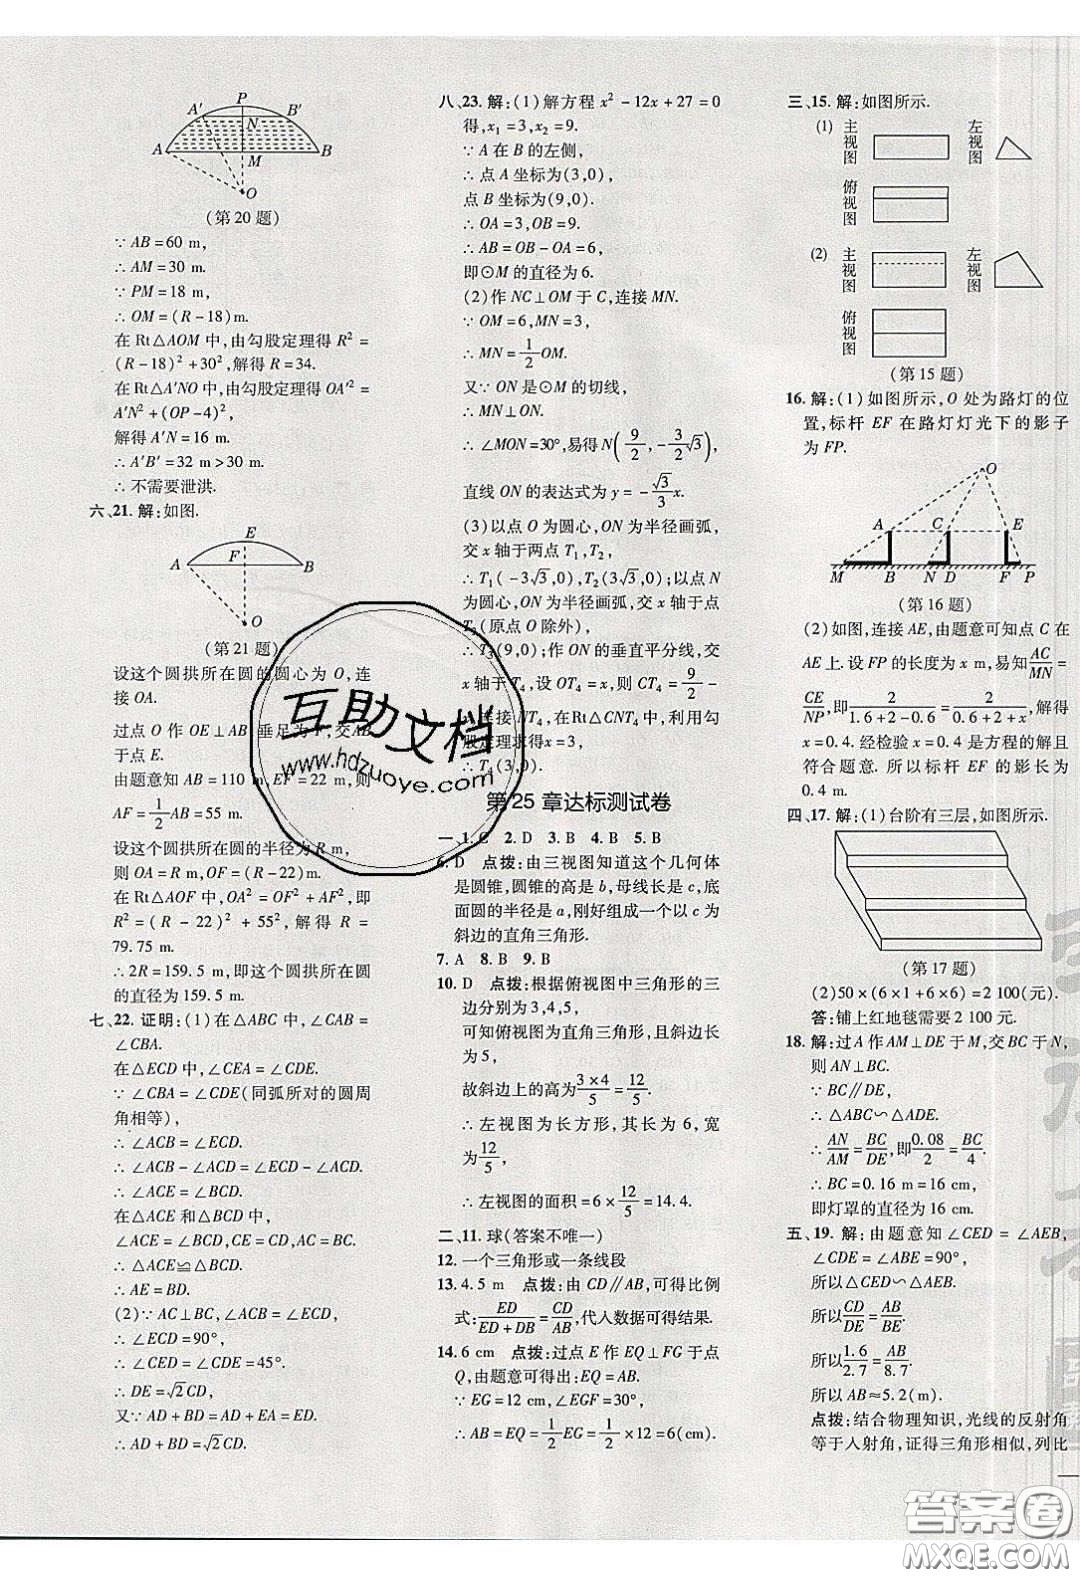 P
A′ B′
N
A M B
O
(第 20 题)
∵ AB = 60 m,
∴ AM = 30 m.
∵ PM = 18 m,
∴ OM = (R - 18) m.
在 Rt△AOM 中,由勾股定理得 R² =
(R - 18)² + 30²,解得 R = 34.
在 Rt△A′NO 中,由勾股定理得 OA′² =
A′N² + (OP - 4)²,
解得 A′N = 16 m.
∴ A′B′ = 32 m > 30 m.
∴ 不需要泄洪.
六、21. 解:如图.
E
F
A B
O
(第 21 题)
设这个圆拱所在圆的圆心为 O,连
接 OA.
过点 O 作 OE⊥AB,垂足为 F,交 AB
于点 E.
由题意知 AB = 110 m,EF = 22 m,
AF = 1/2 AB = 55 m.
设这个圆拱所在圆的半径为 R m,
则 OA = R m,OF = (R - 22) m.
在 Rt△AOF 中,OA² = OF² + AF²,即
R² = (R - 22)² + 55²,解得 R =
79.75 m.
∴ 2R = 159.5 m,即这个圆拱所在圆
的直径为 159.5 m.
七、22. 证明:(1)在△ABC 中,∠CAB =
∠CBA.
在△ECD 中,∠CAE = ∠CDE.
∵ ∠CBA = ∠CDE(同弧所对的圆周
角相等),
∴ ∠ACB = ∠ECD.
∴ ∠ACB - ∠ACD = ∠ECD - ∠ACD.
∴ ∠ACE = ∠BCD.
在△ACE 和△BCD 中,
∠ACE = ∠BCD,CE = CD,AC = BC,
∴ △ACE≌△BCD.
∴ AE = BD.
(2)∵ AC⊥BC,∠ACB = ∠ECD,
∴ ∠ECD = 90°,
∴ ∠CED = ∠CDE = 45°.
∴ DE = √2CD,
又∵ AD + BD = AD + EA = ED,
∴ AD + BD = √2CD.
八、23. 解:(1)解方程 x² - 12x + 27 = 0
得,x₁ = 3,x₂ = 9.
∵ A 在 B 的左侧,
∴ 点 A 坐标为(3,0),
点 B 坐标为(9,0).
∴ OA = 3,OB = 9.
∴ AB = OB - OA = 6,
即⊙M 的直径为 6.
(2)作 NC⊥OM 于 C,连接 MN.
∵ OM = 6,MN = 3,
∴ MN = 1/2 OM.
又∵ ON 是⊙M 的切线,
∴ MN⊥ON.
∴ ∠MON = 30°,易得 N(9/2, -3/2√3),
直线 ON 的表达式为 y = -√3/3 x.
(3)以点 O 为圆心,ON 为半径画弧,
交 x 轴于两点 T₁,T₂,
∴ T₁(-3√3,0),T₂(3√3,0);以点 N
为圆心,ON 为半径画弧,交 x 轴于点
T₃(原点 O 除外),
∴ T₃(9,0);作 ON 的垂直平分线,交
x 轴于 T₄,设 OT₄ = x,则 CT₄ = 9/2 -
x,连接 NT₄,在 Rt△CNT₄ 中,利用勾
股定理求得 x = 3,
∴ T₄(3,0).
第 25 章达标测试卷
一、1. C 2. D 3. B 4. B 5. B
6. D 点拨:由三视图知道这个几何体
是圆锥,圆锥的高是 b,母线长是 c,底
面圆的半径是 a,刚好组成一个以 c 为
斜边的直角三角形.
7. A 8. B 9. B
10. D 点拨:根据俯视图中三角形的三
边分别为 3,4,5,
可知俯视图为直角三角形,且斜边长
为 5,
故斜边上的高为 3×4/5 = 12/5,
∴ 左视图为长方形,其长为 6,宽
为 12/5,
∴ 左视图的面积 = 6 × 12/5 = 14.4.
二、11. 球(答案不唯一)
12. 一个三角形或一条线段
13. 4.5 m 点拨:由 CD∥AB,可得比例
式: ED/(ED + DB) = CD/AB,代入数据可得结果.
14. 6 cm 点拨:过点 E 作 EQ⊥FG 于点
Q,由题意可得出:EQ = AB,
∵ EG = 12 cm,∠EGF = 30°,
∴ AB = EQ = 1/2 EG = 1/2 × 12 = 6(cm).
三、15. 解:如图所示.
(1) 主视图 左视图
俯视图
(2) 主视图 左视图
俯视图
(第 15 题)
16. 解:(1)如图所示,O 处为路灯的位
置,标杆 EF 在路灯灯光下的影子
为 FP.
O
A C E
M B N D F P
(第 16 题)
(2)如图,连接 AE,由题意可知点 C 在
AE 上. 设 FP 的长度为 x m,易知 AC/MN =
CE/NP,即 2/(1.6 + 2 - 0.6) = 2/(0.6 + 2 + x),解得
x = 0.4. 经检验 x = 0.4 是方程的解且
符合题意. 所以标杆 EF 的影长为
0.4 m.
四、17. 解:(1)台阶有三层,如图所示.
(第 17 题)
(2)50 × (6 × 1 + 6 × 6) = 2 100(元).
答:铺上红地毯需要 2 100 元.
18. 解:过 A 作 AM⊥DE 于 M,交 BC 于 N,
则 AN⊥BC.
∵ BC∥DE,
∴ △ABC∽△ADE.
∴ AN/AM = BC/DE,即 0.08/2 = BC/4.
∴ BC = 0.16 m = 16 cm,
即灯罩的直径为 16 cm.
五、19. 解:由题意知 ∠CED = ∠AEB,
∠CDE = ∠ABE = 90°,
所以△CED∽△AEB.
所以 CD/DE = AB/BE.
所以 1.6/2.7 = AB/8.7.
所以 AB≈5.2(m).
点拨:结合物理知识,光线的反射角
等于入射角,证得三角形相似,列比
互助文档
www.hdzuoye.com
答案圈
MXQE.COM